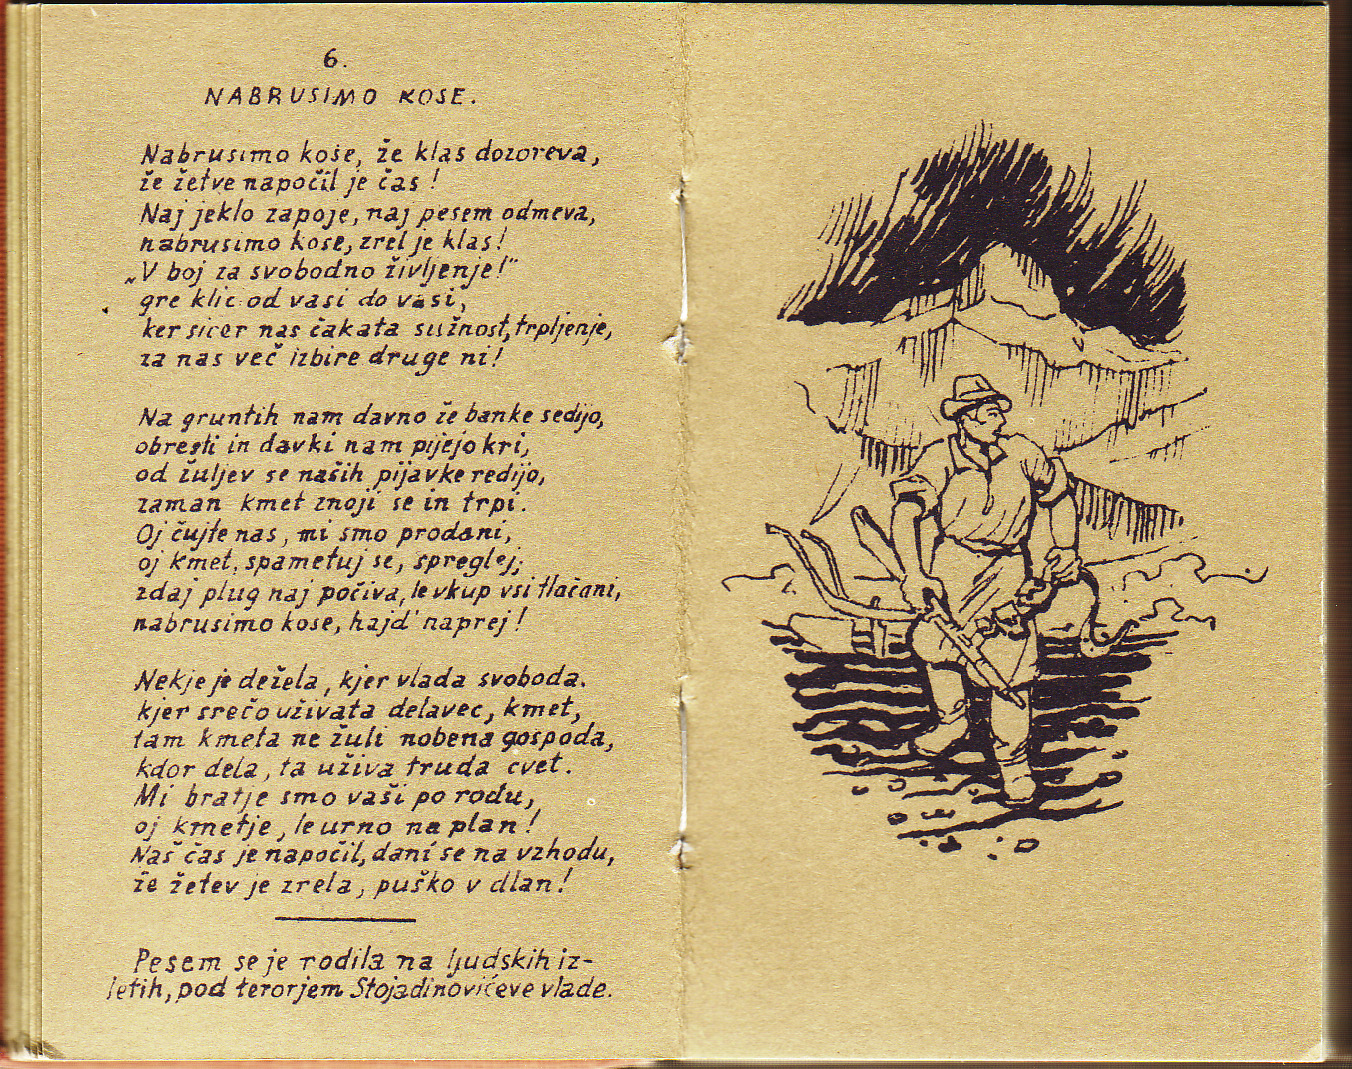 6.
NABRUSIMO KOSE.
Nabrusimo kose, že klas dozoreva,
že žetve napočil je čas!
Naj jeklo zapoje, naj pesem odmeva,
nabrusimo kose, zrel je klas!
„V boj za svobodno življenje!"
gre klic od vasi do vasi,
ker sicer nas čakata sužnost, trpljenje,
za nas več izbire druge ni!
Na gruntih nam davno že banke sedijo,
obresti in davki nam pijejo kri,
od žuljev se naših pijavke redijo,
zaman kmet znoji se in trpi.
Oj čujte nas, mi smo prodani,
oj kmet, spametuj se, spreglej;
zdaj plug naj počiva, le vkup vsi tlačani,
nabrusimo kose, hajd' naprej!
Nekje je dežela, kjer vlada svoboda.
kjer srečo uživata delavec, kmet,
tam kmeta ne žuli nobena gospoda,
kdor dela, ta uživa truda cvet.
Mi bratje smo vaši po rodu,
oj kmetje, le urno na plan!
Naš čas je napočil, dani se na vzhodu,
že žetev je zrela, puško v dlan!
Pesem se je rodila na ljudskih iz-
letih, pod terorjem Stojadinovićeve vlade.